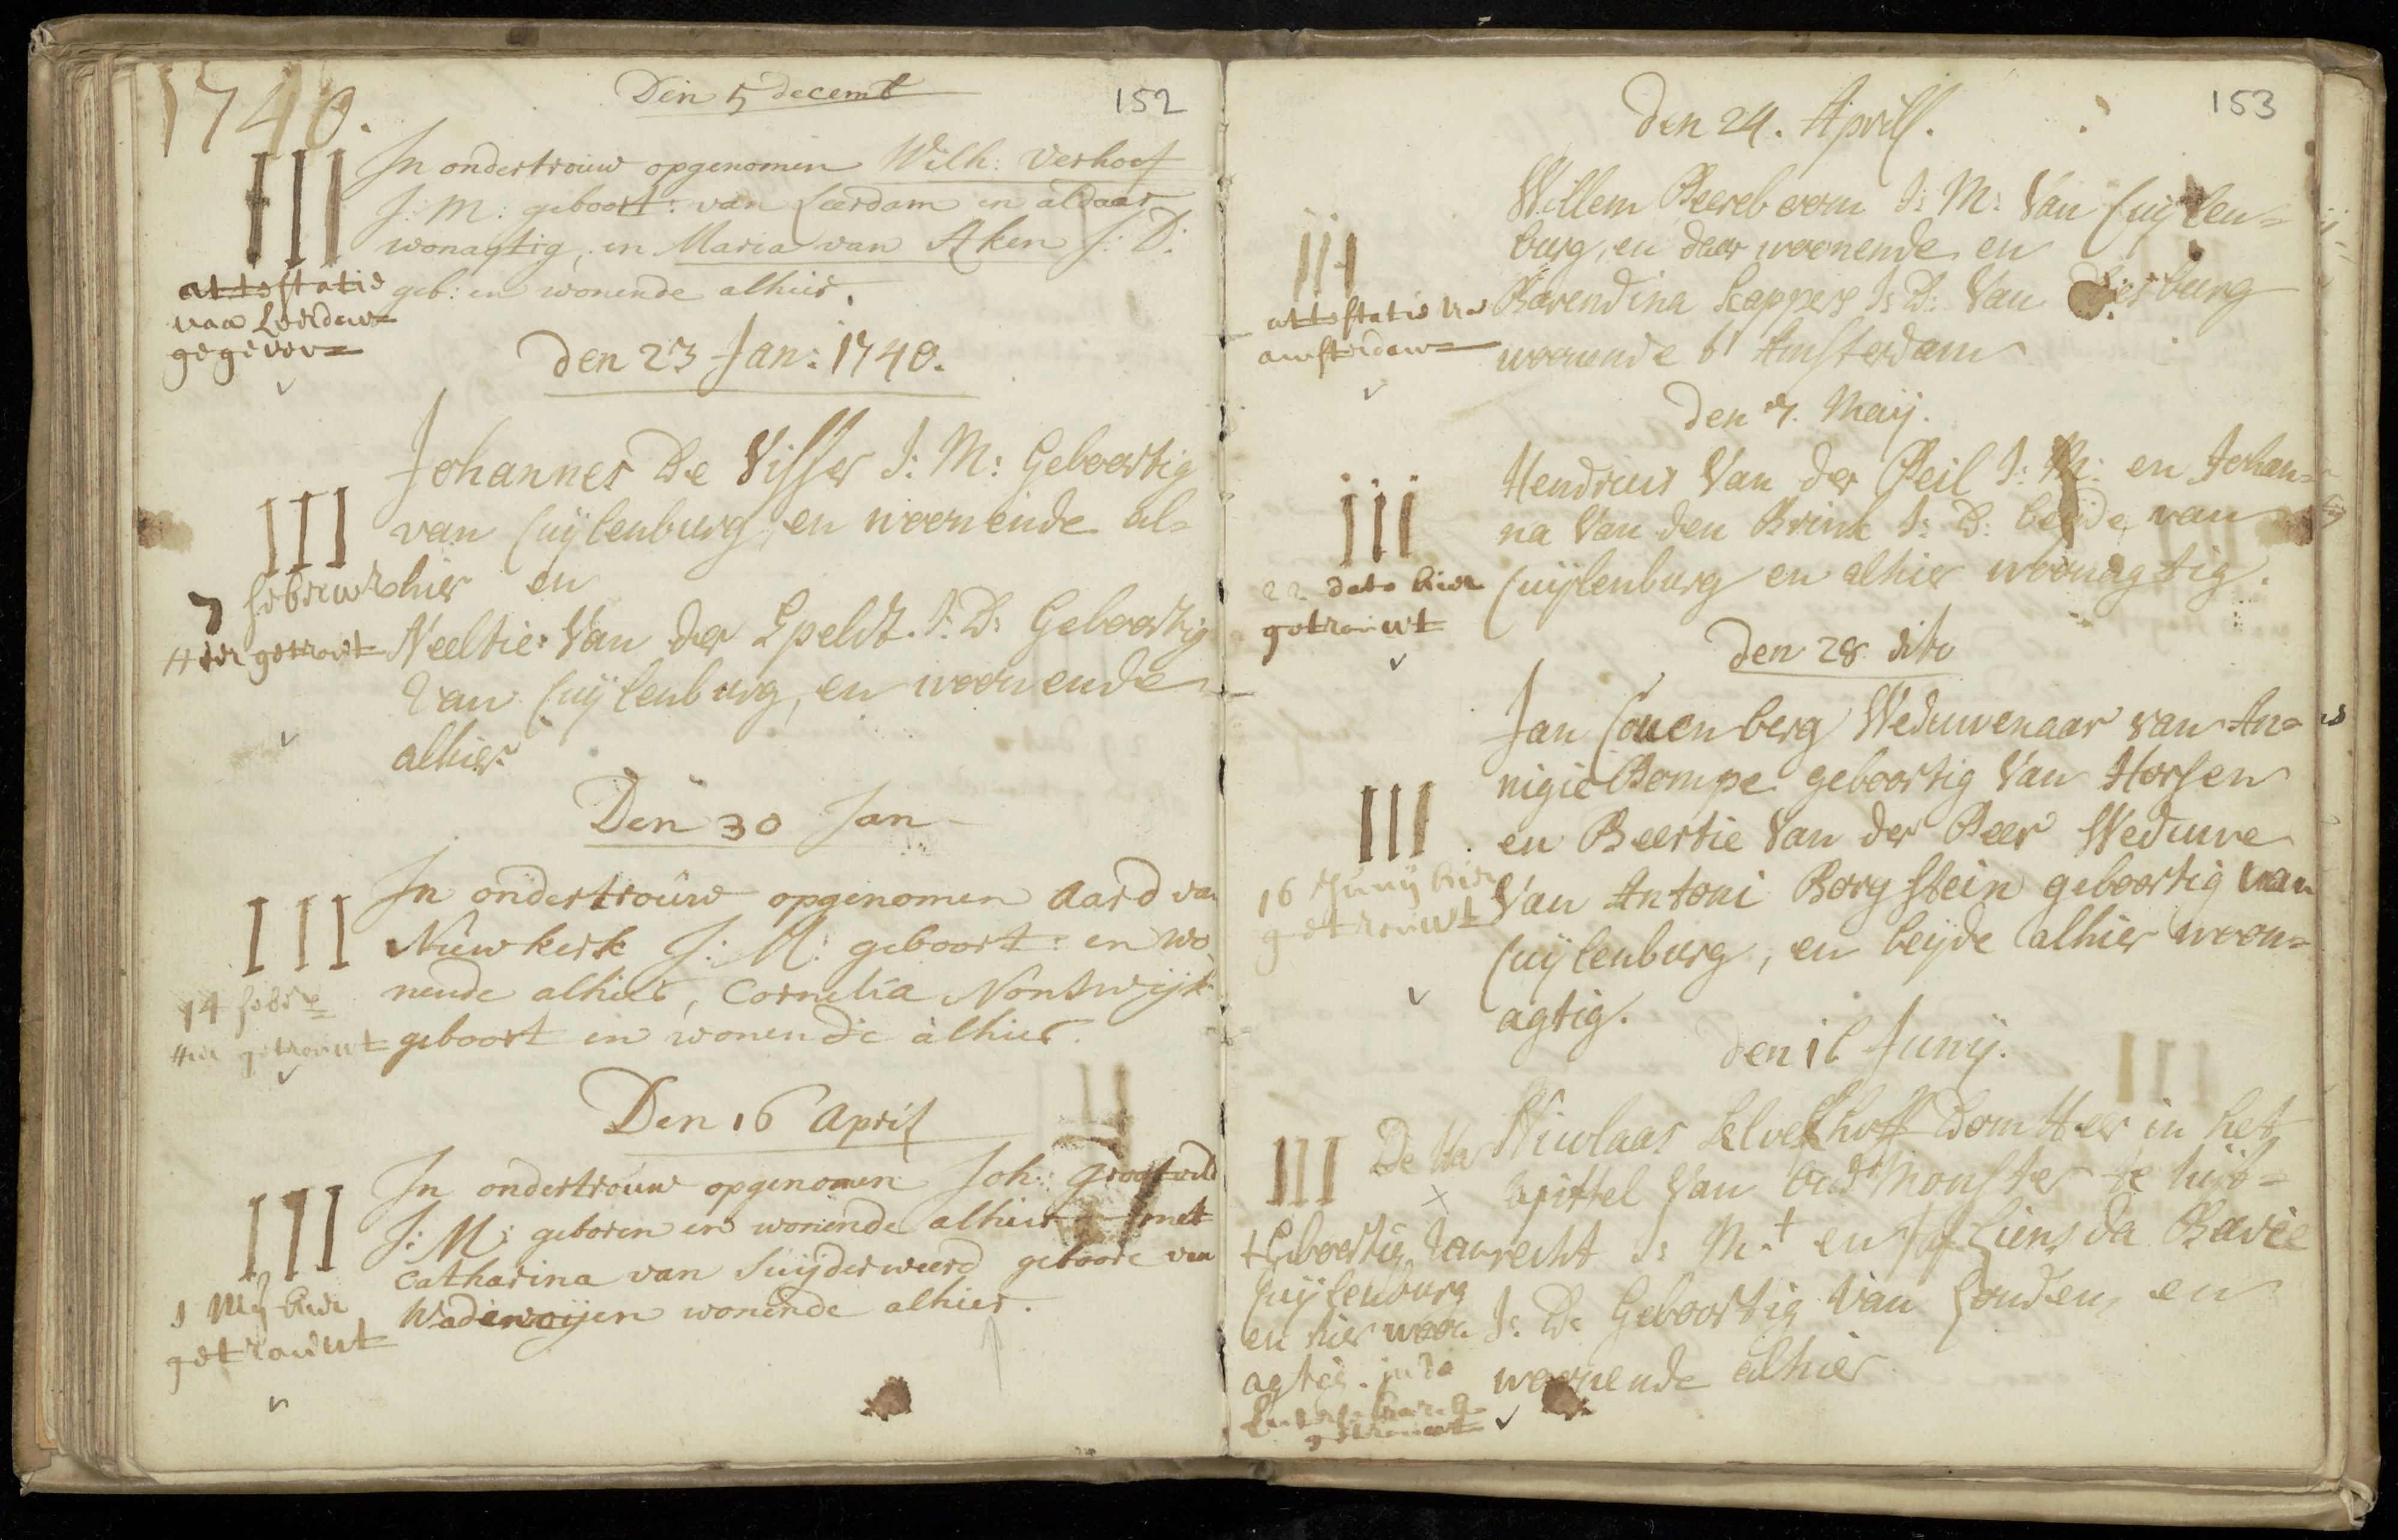 1740.
Den 5 decemb
152
III
In ondertrouw opgenomen Wilh: Verhoef
J: M: geboort: van Leerdam en aldaar
wonagtig, en Maria van Aken J: D:
geb: en wonende alhier.
attestatie
van Leerdam
gegeven
Den 23 Jan: 1740.
Johannes De Visser J: M: Geboortig
van Cuijlenburg, en woonende al=
hier en
Neeltie Van der Speldt. J: D: Geboortig
Van Cuijlenburg, en woonende
alhier
III
7 februar
Hier getrout
Den 30 Jan
III
In ondertrouw opgenomen Aard van
Niewkerk J: M: geboort: en wo
nende alhier, Cornelia Nontwijk
geboort en wonende alhier.
14 febr
Hier getrouwt
Den 16 April
III
In ondertrouw opgenomen Joh: Grootveld
J: M: geboren en wonende alhier met
Catharina van Suijderweerd geboore van
Wadenoijen wonende alhier.
1 Mij hier
getrouwt
153
Den 24. Aprill.
III
Willem Beereboom J: M: Van Cuijlen=
burg, en daer woonende en
Barendina Kappers J: D: Van burg
woonende t' Amsterdam
attestatie van
amsterdam
Den 7. Maij.
III
Hendricus Van der Peil J: M: en Johan=
na Van den Brink J: D: beyde van
Cuijlenburg en alhier woonagtig.
22 dato hier
getrouwt
Den 28 dito
III
Jan Couenberg Weduwenaar van An=
nigie Bompe geboortig Van Horssen
en Beertie Van der Beer Weduwe
Van Antoni Borgstein geboortig van
Cuijlenburg, en beijde alhier woon=
agtig.
16 Junij hier
getrouwt
den 16 Junij.
III
De Hr Nicolaas Kloekhoff Domheer in het
Capittel Van Oudmonster te Uijt=
recht J: M: + en Juf Ba
J: D: Geboortig Van Londen, en
woonende alhier
+ Geboortig Van
Cuijlenburg
en hier woon
agtig. in de
getrouwt